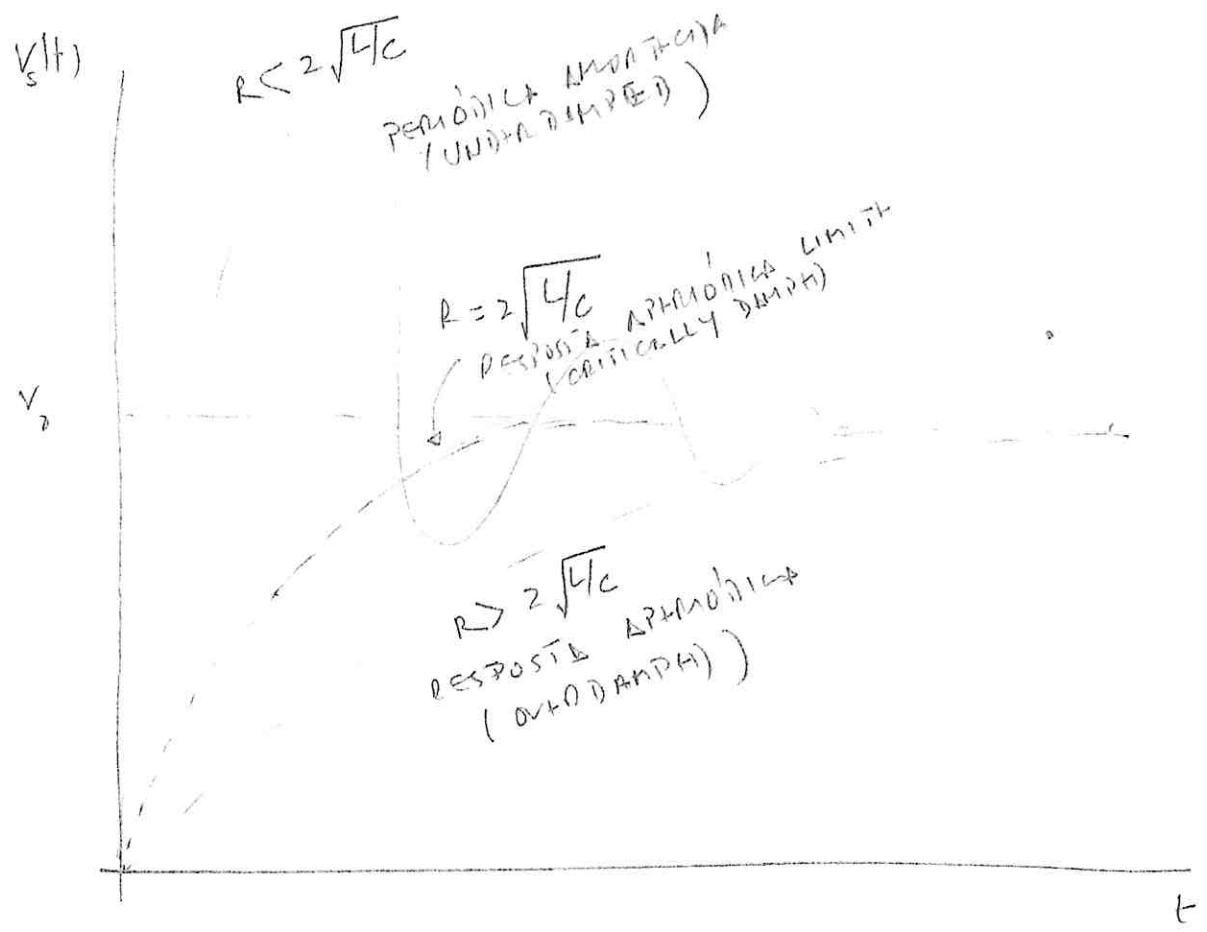 V_s(t)
R < 2 √L/C
PERIÓDICA AMORTECIDA
(UNDERDAMPED)
R = 2 √L/C
RESPOSTA APERIÓDICA LIMITE
(CRITICALLY DAMPED)
V_0
R > 2 √L/C
RESPOSTA APERIÓDICA
(OVERDAMPED)
t